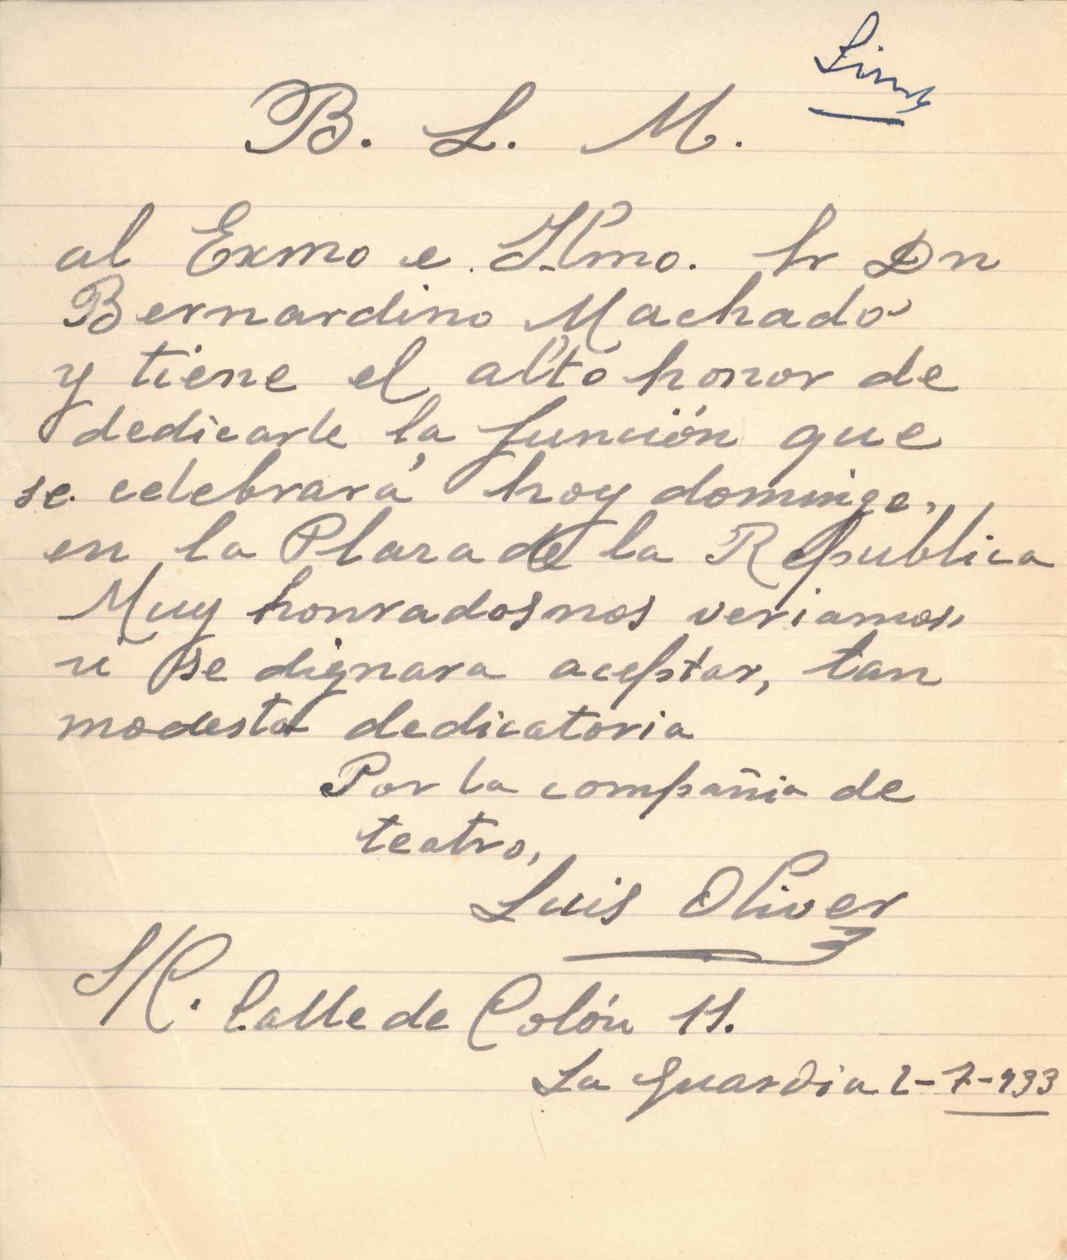 B. L. M.
al Exmo e Ilmo. Sr Dn
Bernardino Machado
y tiene el alto honor de
dedicarle la función que
se celebrará hoy domingo,
en la Plaza de la República
Muy honrados nos veriamos,
si se dignara aceptar, tan
modesta dedicatoria
Por la compañia de
teatro,
Luis Oliver
S/C. Calle de Colón 11.
La Guardia 2-7-933